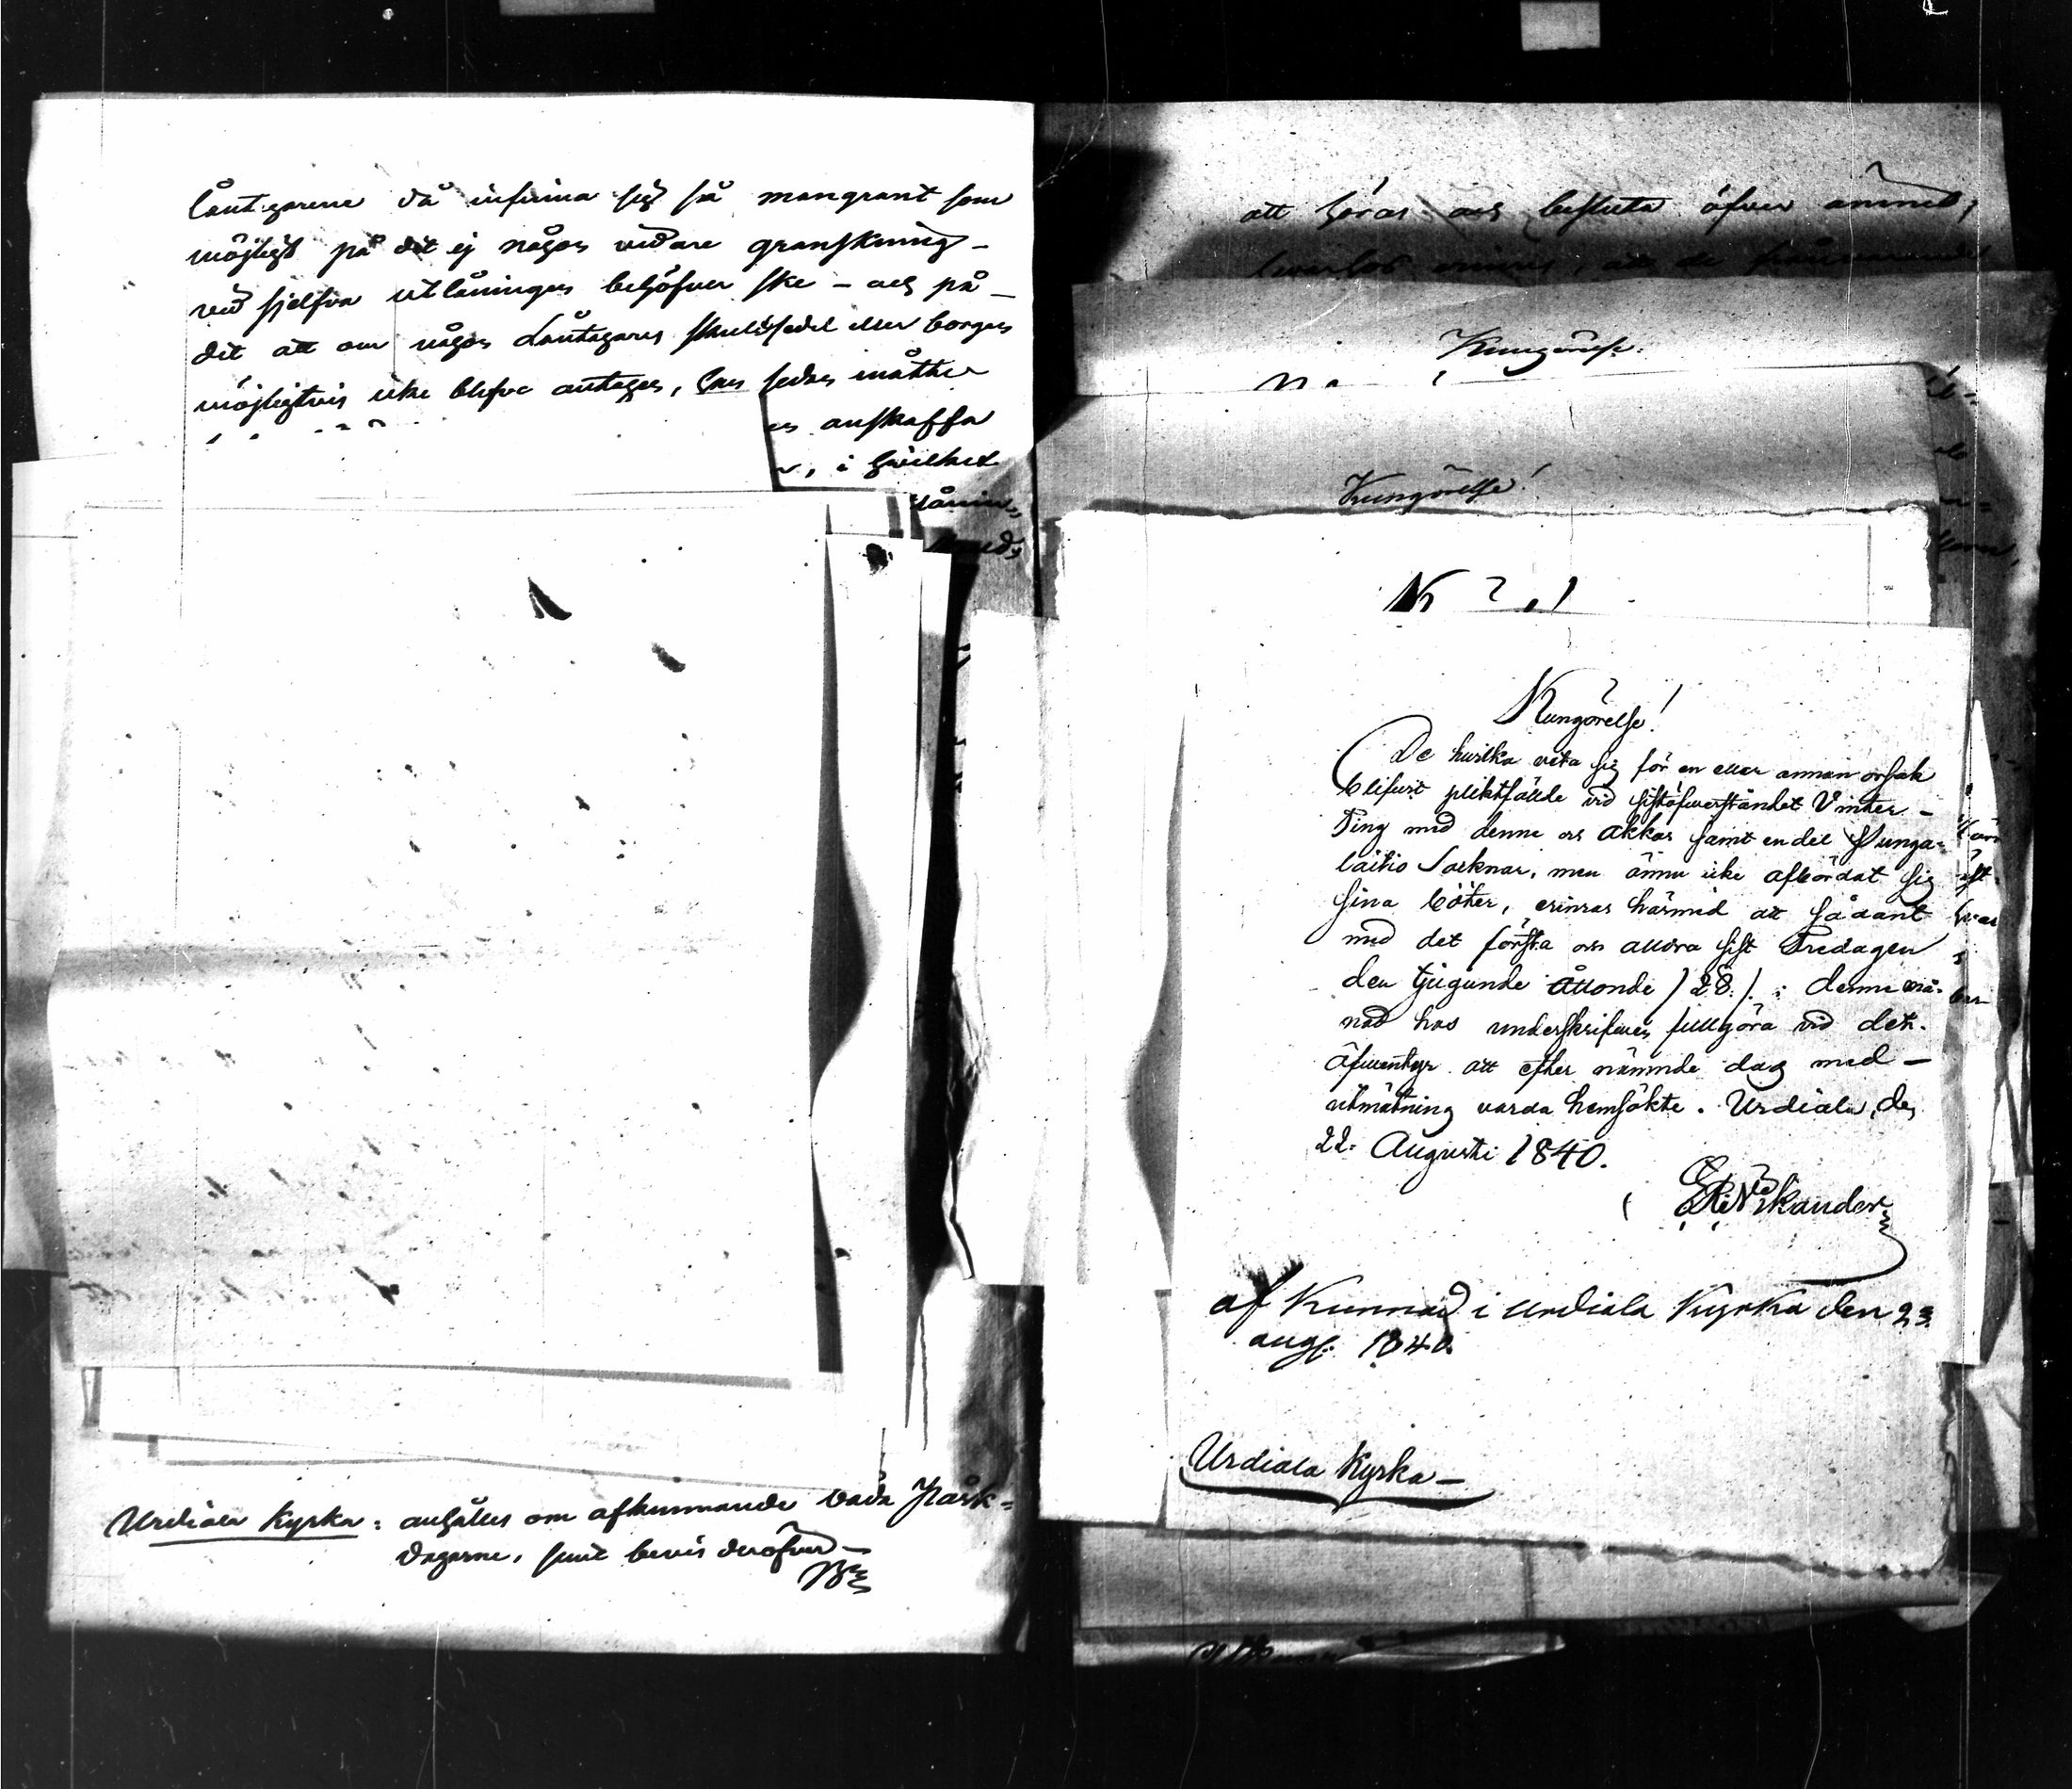 Låntagarene då infinna sig så mangrant som
möjligt på det ej någon vidare granskning –
vid sjelfva utlåningen behöfver ske – och på –
det att om någon Låntagares skuldsedel eller borgen
möjligtvis icke blefve antagen, han sedan måtte
anskaffa
, i hvilket
Urdiala Kyrka: anhålles om afkunnande båda Påsk-
dagarne, samt bevis deröfver –
att höras och besluta öfver ämnet,
Kungörelse.
Kungörelse!
Kungörelse!
De hvilka veta sig för en eller annan orsak
blifvit pliktfälde vid sistöfverståndet Vinter –
Ting med denne och Akkas samt en del Punga-
laitio Socknar, men ännu icke afbördat sig
sina böter, erinras härmed att sådant
med det första och alldra sist Fredagen
den tjugunde Åttonde /28./ i denne må-
nad hos underskrifven fullgöra vid det.
äfventyr att efter nämnde dag med –
utmätning varda hemsökte. Urdiala, den
22. Augusti 1840.
Nikander
af Kunnad i urdiala Kyrka den 23
aug. 1840.
Urdiala Kyrka –